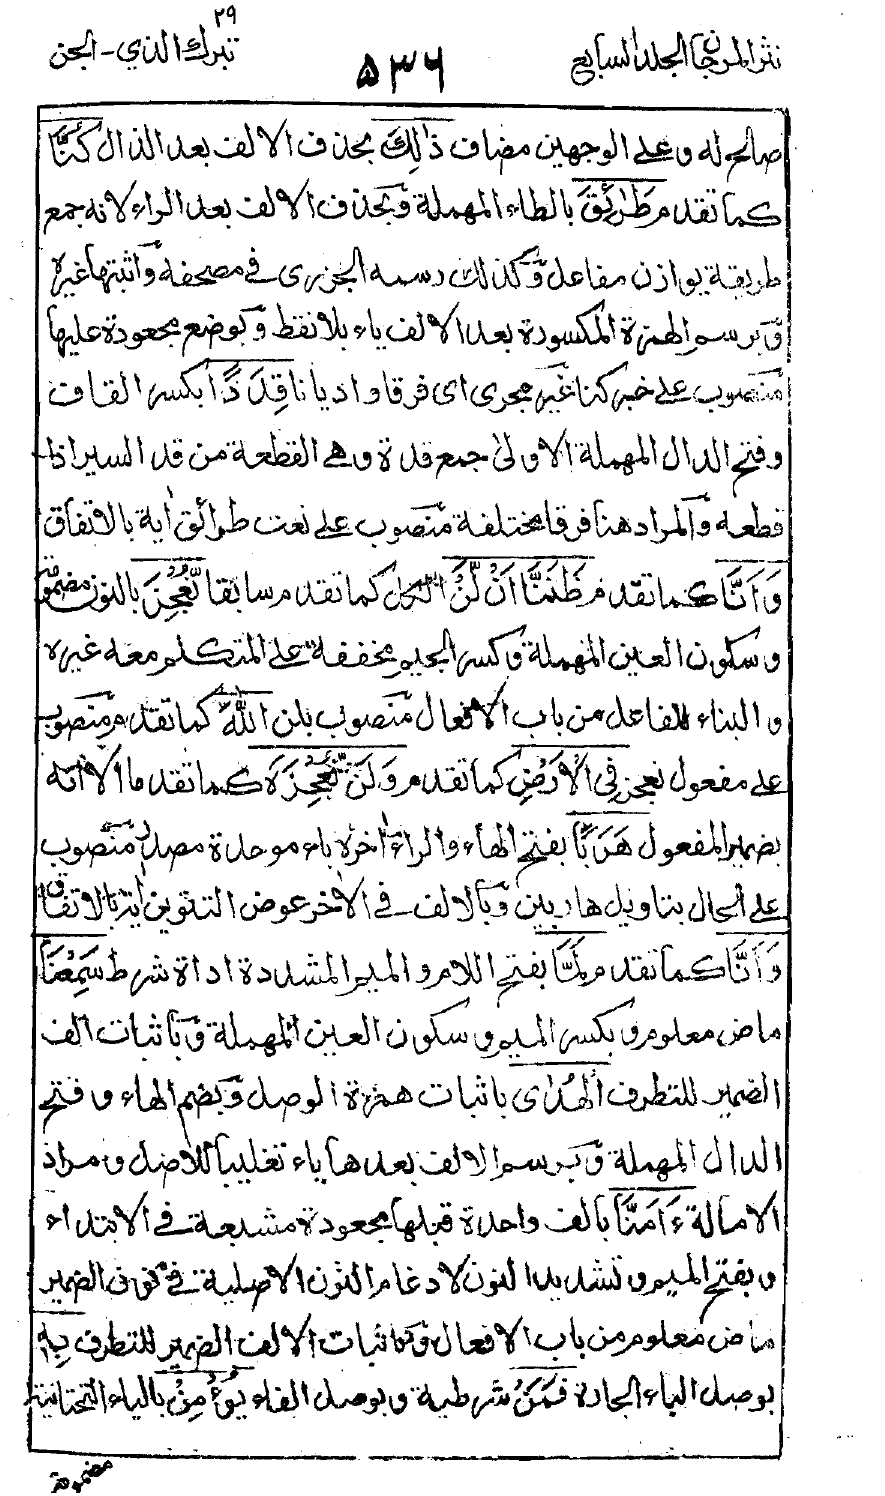 نثر المرجان الجلد السابع
٥٣٦
٢٩
تبرك الذي - الجن
صالح له وعلى الوجهين مضاف ذٰلِكَ بحذف الالف بعد الذال كُنَّا
كما تقدم طَرَآئِقَ بالطاء المهملة وبحذف الالف بعد الراء لانه جمع
طريقة يوازن مفاعل وكذلك رسمه الجزرى فى مصحفه واثبتها غيره
وبرسم الهمزة المكسورة بعد الالف ياء بلا نقط وبوضع مجعودة عليها
منصوب على خبر كنا غير مجرى اى فرقا واديانا قِدَدًا بكسر القاف
وفتح الدال المهملة الاولى جمع قدة وهى القطعة من قد السير اذا
قطعه والمراد هنا فرقا مختلفة منصوب على نعت طرائق اية بالاتفاق
وَاَنَّا كما تقدم ظَنَنَّا اَنْ لَّنْ الكل كما تقدم سابقا نُّعْجِزَ بالنون مضمومة
وسكون العين المهملة وكسر الجيم مخففة على المتكلم معه غيره
والبناء للفاعل من باب الافعال منصوب بلن اللّٰهَ كما تقدم منصوب
على مفعول نعجز فِى الْاَرْضِ كما تقدم وَلَنْ نُّعْجِزَهٗ كما تقدم الا انه
بضمير المفعول هَرَبًا بفتح الهاء والراء اخره باء موحدة مصدر منصوب
على الحال بتاويل هاربين وبالالف فى الاخر عوض التنوين اية بالاتفاق
وَاَنَّا كما تقدم لَمَّا بفتح اللام والميم المشددة اداة شرط سَمِعْنَا
ماض معلوم وبكسر الميم وسكون العين المهملة وباثبات الف
الضمير للتطرف الْهُدٰى باثبات همزة الوصل وبضم الهاء وفتح
الدال المهملة وبرسم الالف بعدها ياء تغليبا للاصل ومراد
الامالة ءَامَنَّا بالف واحدة قبلها مجعودة مشبعة فى الابتداء
وبفتح الميم وتشديد النون لادغام النون الاصلية فى نون الضمير
ماض معلوم من باب الافعال وباثبات الالف الضمير للتطرف بِهٖ
بوصل الباء الجارة فَمَنْ شرطية وبوصل الفاء يُؤْمِنْ بالياء التحتانية
مضمومة